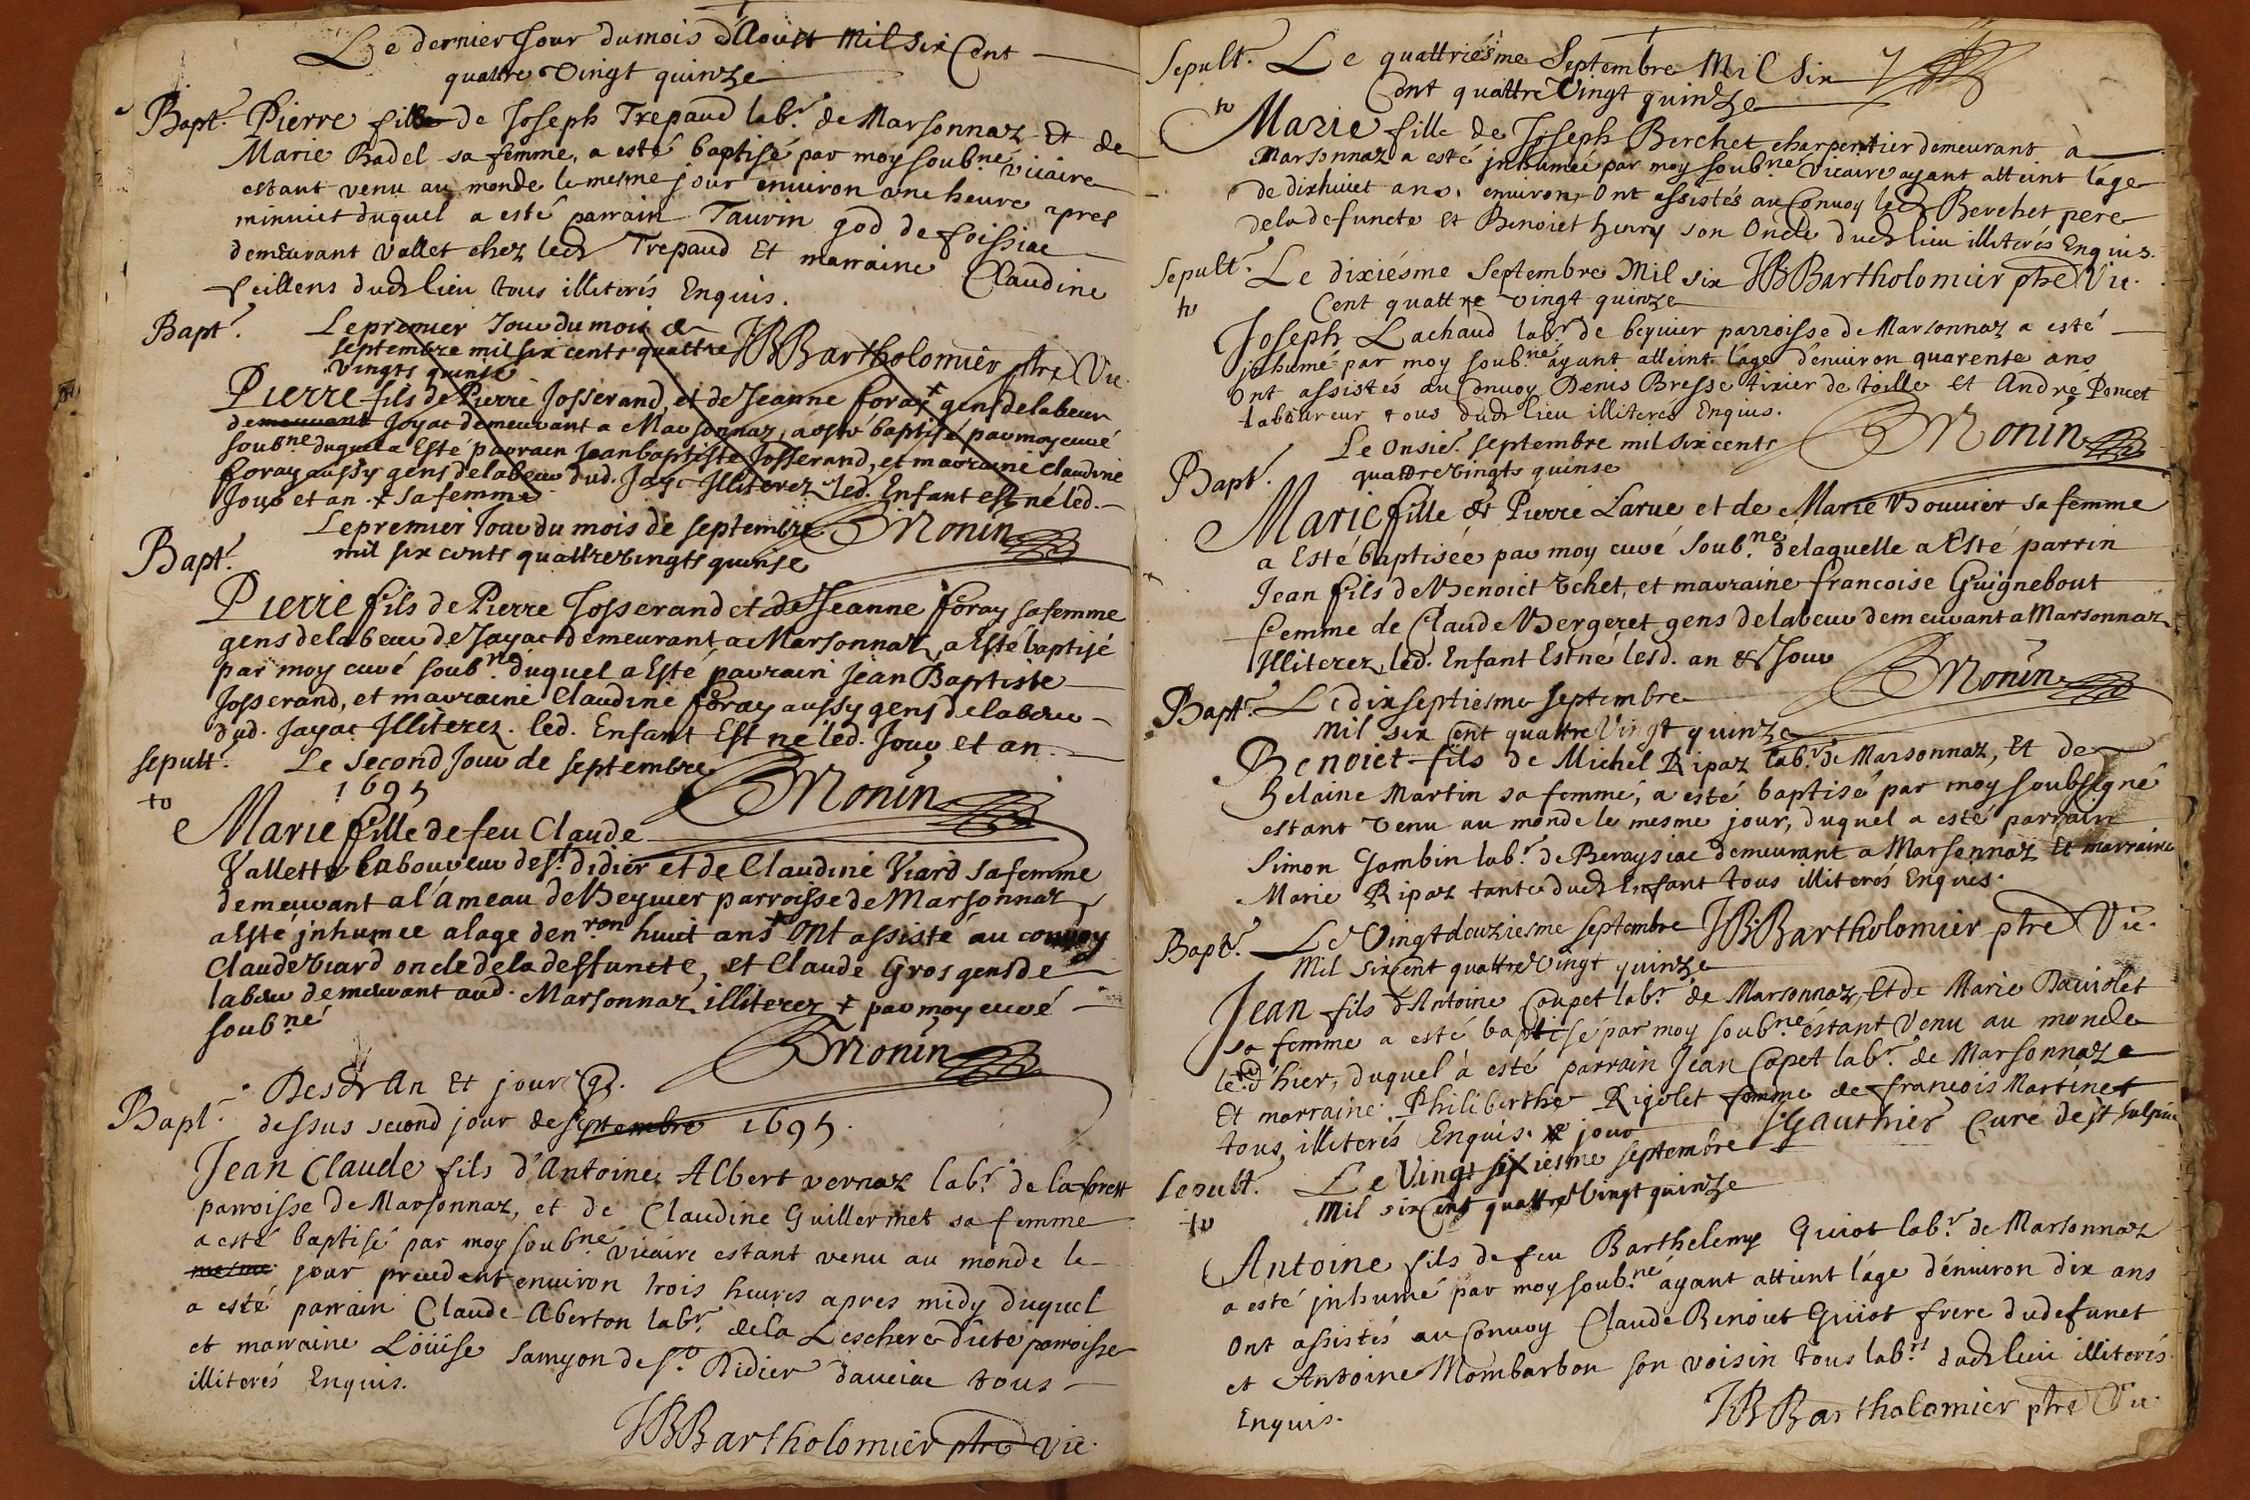 Le dernier Jour du mois d'Aoust Mil six Cent
quattre Vingt quinze
Bapt. Pierre fils de Joseph Trepaud labr. de Marsonnaz Et de
Marie Badel sa femme, a esté baptisé par moy soubné vicaire
estant venu au monde le mesme jour environ une heure apres
minuict duquel a esté parrain Taurin god de foissiac
demeurant vallet chez led Trepaud Et marraine Claudine
feillens dud lieu tous illiterés Enquis.
JBBartholomier ptre Vic.
Bapt. Le premier Jour du mois de
septembre mil six cents quattre
vingts quinse
Pierre fils de Pierre Josserand, et de Jeanne foray + gens de labeur
demeurant Jayac demeurant a Marsonnaz, a esté baptisé par moy curé
soubné duquel a Esté parrain Jean baptiste Josserand, et marraine Claudine
foray aussy gens de labeur dud. Jayac Illiterez led. Enfant est né led.
Jour et an + sa femme
Monin
Bapt. Le premier Jour du mois de septembre
mil six cents quattrevingts quinse
Pierre fils de Pierre Josserand et de Jeanne foray sa femme
gens de labeur de Jayac demeurant a Marsonnaz, a Esté baptisé
par moy curé soubné duquel a Esté parrain Jean Baptiste
Josserand, et marraine Claudine foray aussy gens de labeur
dud. Jayac Illiterez. led. Enfant Est né led. Jour et an.
Monin
sepult. Le second Jour de septembre
to 1695
Marie fille de feu Claude
Vallette laboureur de st. didier et de Claudine Viard sa femme
demeurant a l'ameau de Beyvier parroisse de Marsonnaz
a Esté inhumee a lage denron huict ans + ont assisté au convoy
Claude Viard oncle de la deffuncte, et Claude Gros gens de
labeur demeurant aud. Marsonnaz illiterez + par moy curé
soubné
Monin
Bapt. Desd An Et jour cy
dessus second jour de septembre 1695.
Jean Claude fils d'Antoine Albert vernaz labr. de la forest
parroisse de Marsonnaz, et de Claudine Guillermet sa femme
a esté baptisé par moy soubné vicaire estant venu au monde le
mesme jour precedent environ trois heures apres midy duquel
a esté parrain Claude Aberton labr. de la Leschere dicte parroisse
et marraine Loüise Samyon de st. Didier d'auciac tous
illiterés Enquis.
JBBartholomier ptre Vic.
Sepult. Le quattriésme Septembre Mil Six
to Cent quattre Vingt quinze
Marie fille de Joseph Berchet charpentier demeurant à
Marsonnaz a esté inhumeé par moy soubné Vicaire ayant atteint l'âge
de dixhuict ans environ Ont assistés au Convoy led Berchet pere
de la defuncte Et Benoict hurry son Oncle dud lieu illiterés Enquis.
JBBartholomier ptre Vic.
Sepult. Le dixiésme Septembre Mil six
to Cent quattre vingt quinze
Joseph Lachaud labr de beyvier parroisse de Marsonnaz a esté
inhumé par moy soubné ayant atteint l'âge d'environ quarente ans
Ont assistés au Convoy Denis Bresse tixier de toille et André Poncet
laboureur tous dud lieu illiterés Enquis.
Monin
Bapt. Le onsie. septembre mil six cents
quattrevingts quinse
Marie fille de Pierre Larue et de Marie Bouvier sa femme
a Esté baptisée par moy curé soubné de laquelle a Esté parrin
Jean fils de Benoict Echet, et marraine francoise Guignebout
femme de Claude Bergeret gens de labeur demeurant a Marsonnaz
Illiterez led. Enfant Est né lesd. an & Jour
Monin
Bapt. Le dix septiesme septembre
Mil six Cent quattre Vingt quinze
Benoict fils de Michel Ripaz labr. de Marsonnaz, Et de
helaine Martin sa femme, a esté baptisé par moy soubsigné
estant venu au monde le mesme jour, duquel a esté parrain
Simon Gambin labr. de Beraysiac demeurant a Marsonnaz Et marraine
Marie Ripaz tante dud Enfant tous illiterés Enquis.
JBBartholomier ptre Vic.
Bapt. Le Vingt deuziesme septembre
Mil Six Cent quattre Vingt quinze
Jean fils d'Antoine Coupet labr. de Marsonnaz, Et de Marie Daviolet
sa femme a esté baptisé par moy soubné éstant venu au monde
le d'hier, duquel à esté parrain Jean Copet labr. de Marsonnaz
Et marraine Philiberthe Rigolet femme de francois Martinet
tous illiterés Enquis. jour
JGauthier Curé de st sulpice
Sepult. Le Vingt sixiesme septembre
to Mil six Cent quattre Vingt quinze
Antoine fils de feu Barthelemy Guiot labr. de Marsonnaz
a esté inhumé par moy soubné ayant attient l'âge d'environ dix ans
Ont assistés au Convoy Claude Benoict Guiot frere du defunct
et Antoine Mombarbon son voisin tous labrs dud lieu illiterés
Enquis.
JBBartholomier ptre Vic